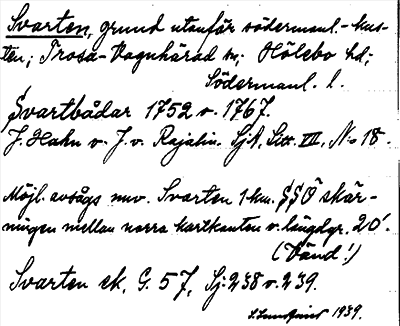 Svarten, grund utanför södermanl.-kus-
ten; Trosa-Vagnhärad sn; Hölebo hd;
Södermanl. l.
Svartbådar 1752 o. 1767.
J. Hahn o. J. v. Rajalin. SjA, Litt. VII, No 18.
Möjl. avsågs nuv. Svarten 1 km. SSÖ skär-
ningen mellan norra kartkanten o. längdgr. 20'.
(Vänd!)
Svarten ek. G. 57, Sj. 238 o. 239.
1939.